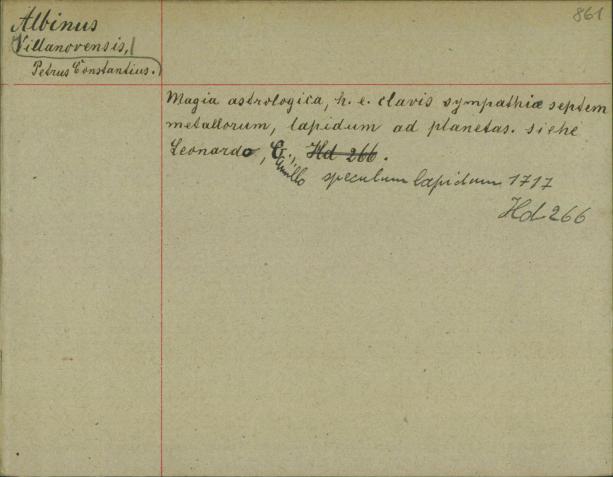 861
Albinus
Villanovensis,
Petrus Constantius.
Magia astrologica, h. e. clavis sympathiæ septem
metallorum, lapidum ad planetas. siehe
Leonardo, C., Hd 266.
Camillo speculum lapidum 1717
Hd 266